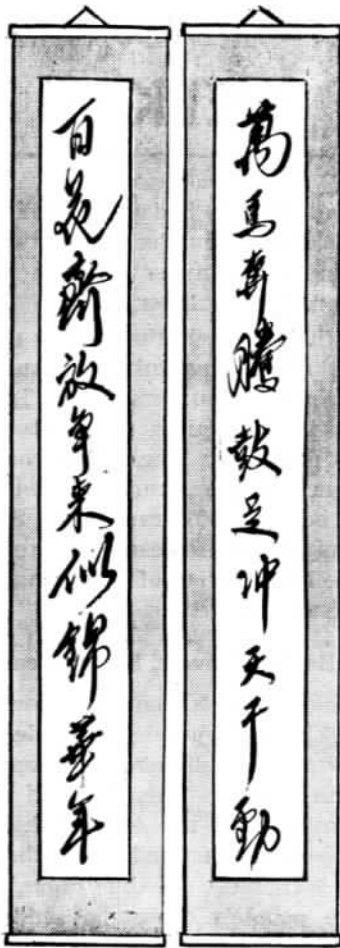 萬馬奔騰鼓足冲天干勁
百花齊放争來似錦華年